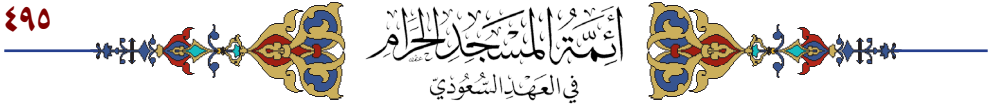 ٤٩٥
أَئِمَّةُ المَسْجِدِ الحَرَامِ
في العَهْدِ السُّعُودِيّ